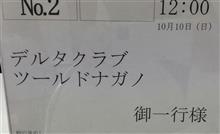 No.2
12:00
10月10日（日）
デルタクラブ
ツールドナガノ
御一行様